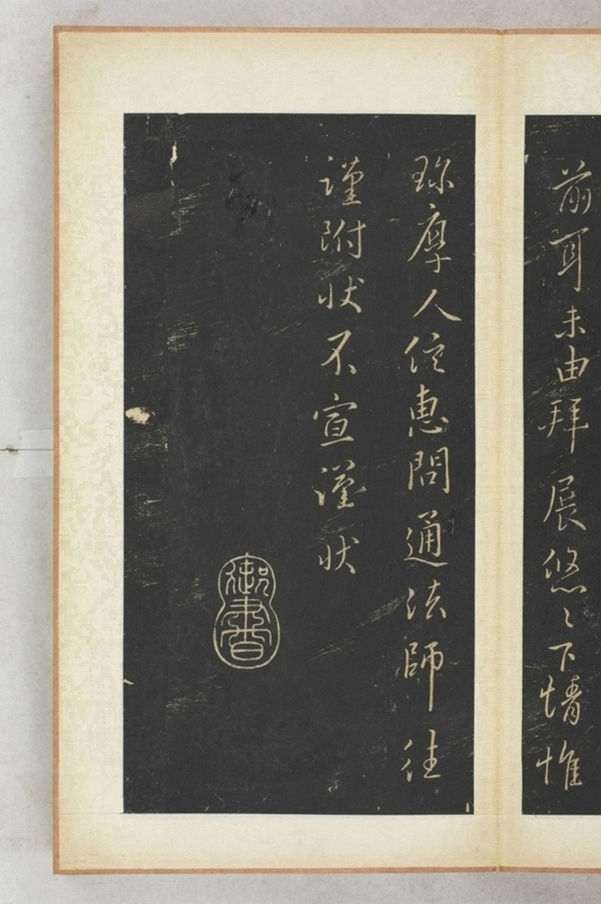 前耳未由拜展悠〻下情惟
珎厚人信惠問通法師往
謹附狀不宣謹狀
御書